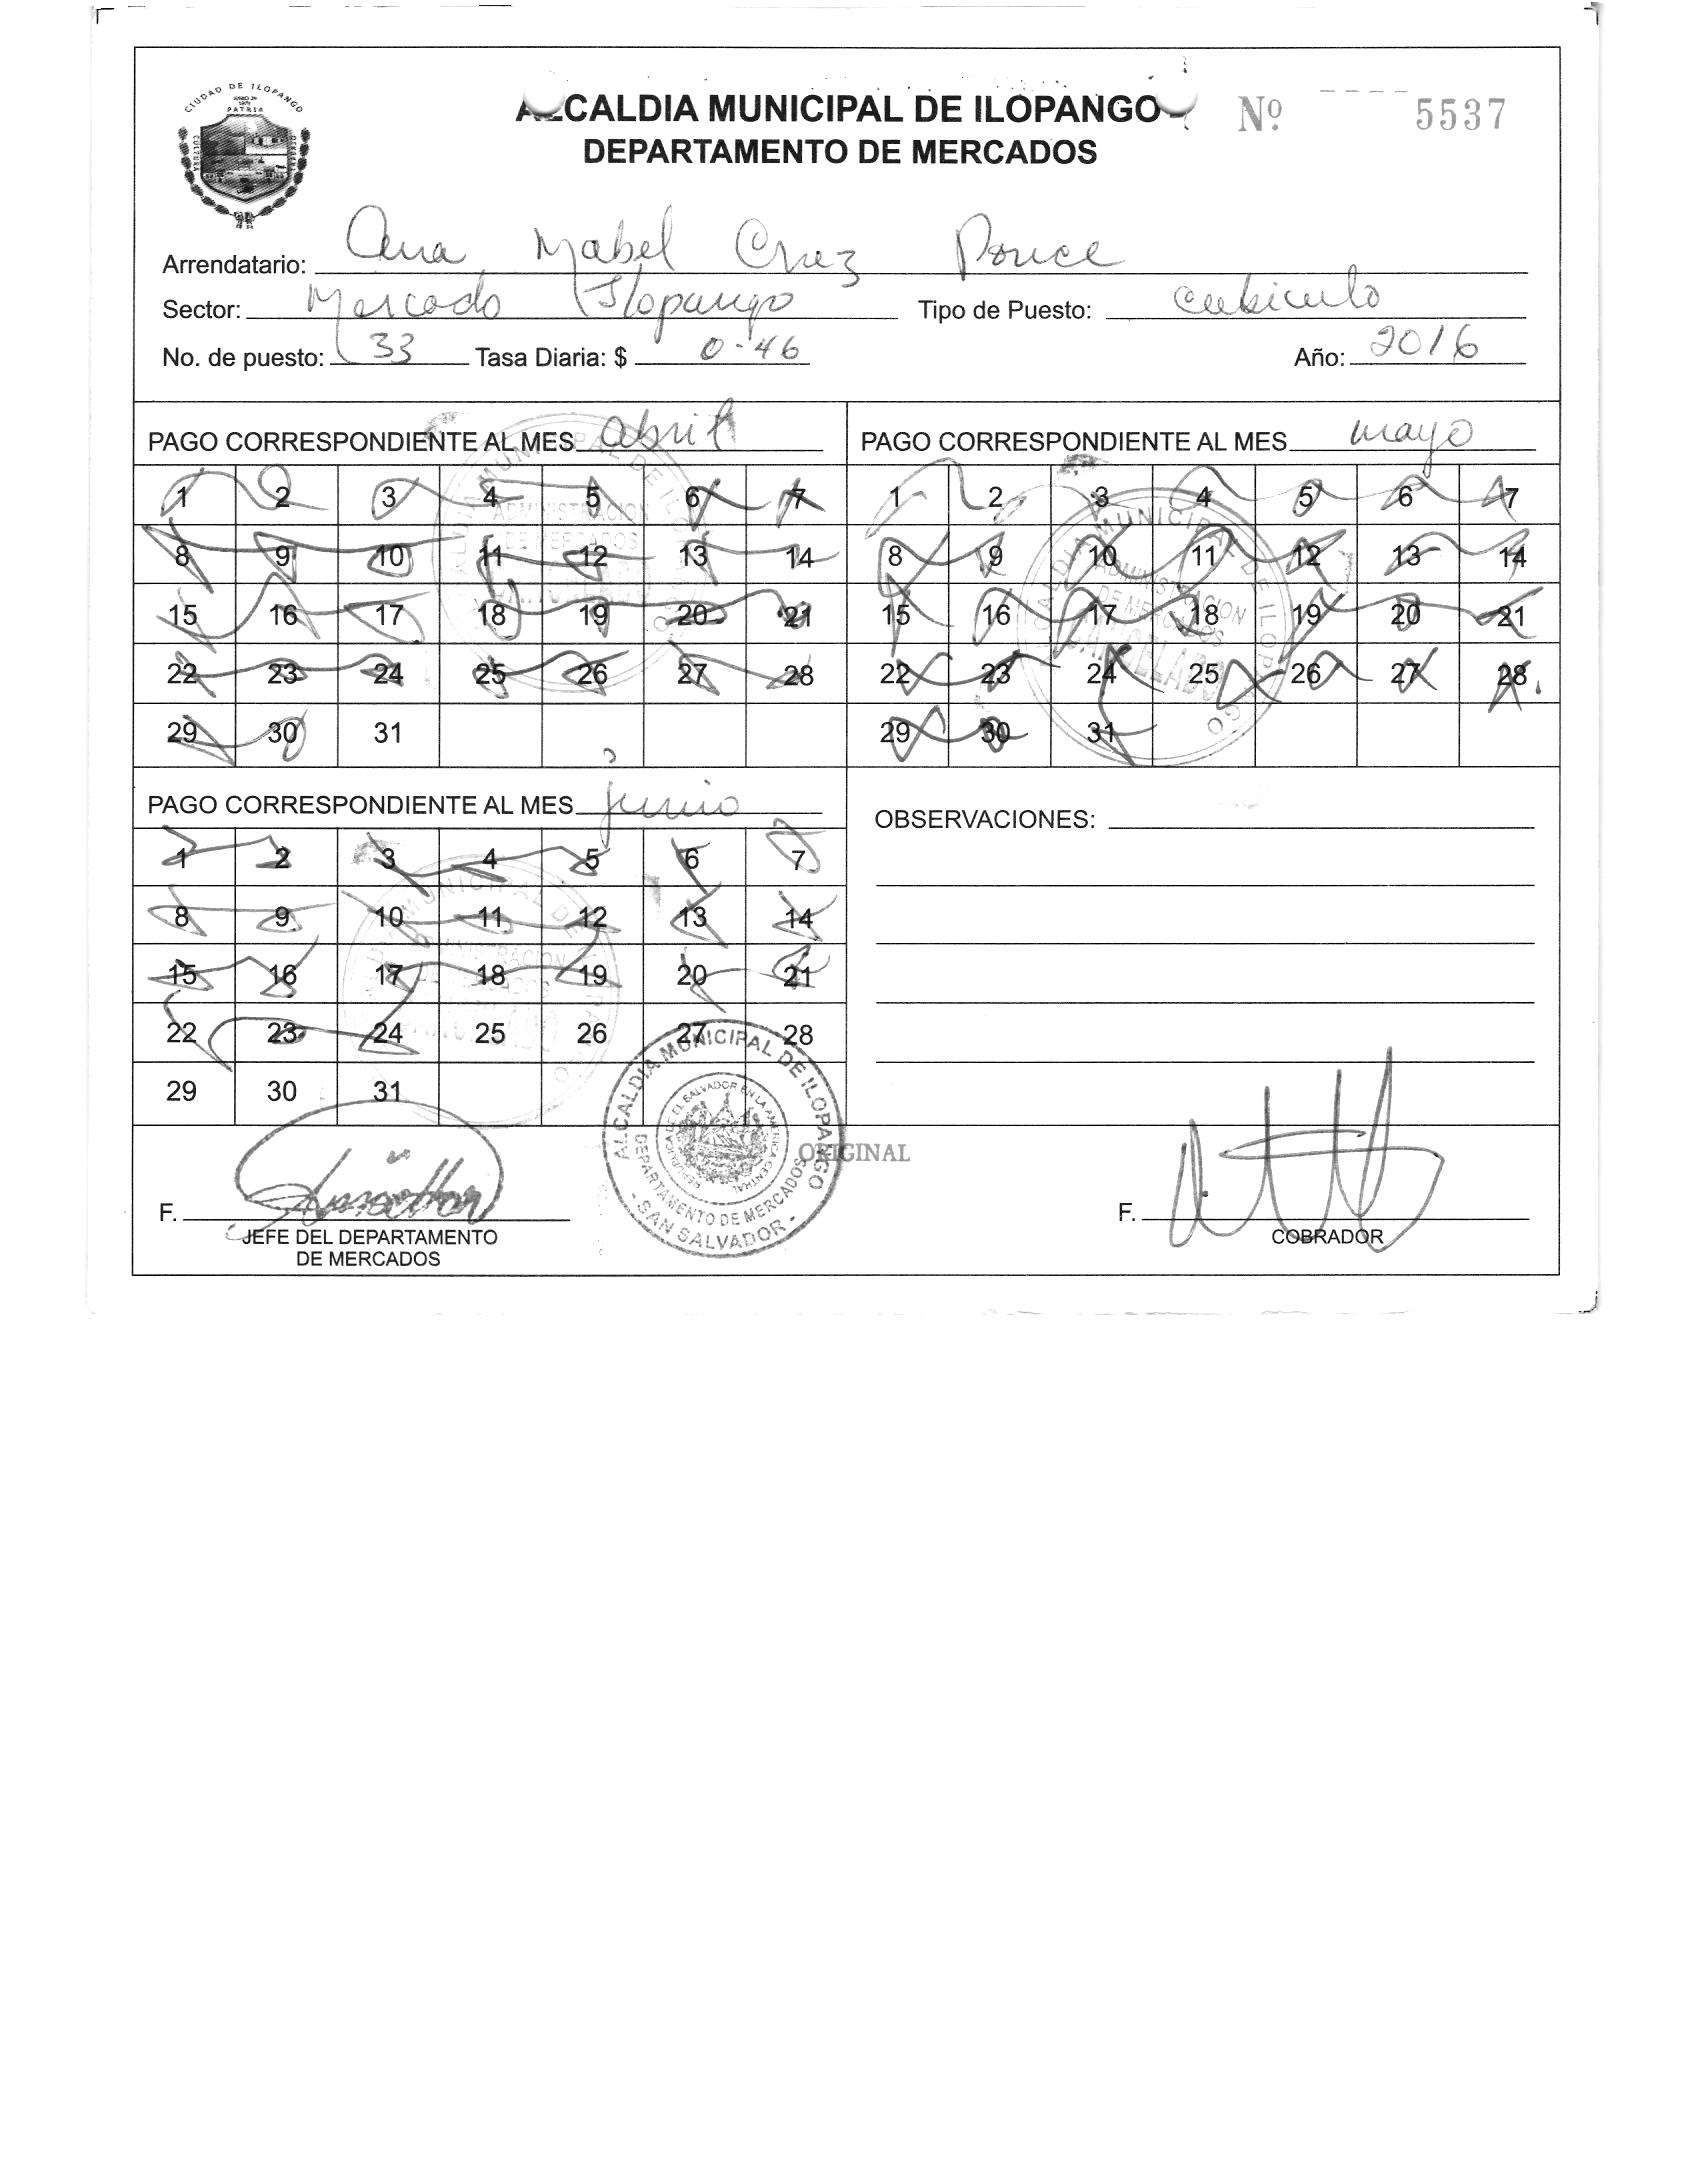 CIUDAD DE ILOPANGO
PATRIA
CULTURA
ALCALDIA MUNICIPAL DE ILOPANGO
Nº 5537
DEPARTAMENTO DE MERCADOS
Arrendatario: Ana Mabel Cruz Ponce
Sector: Mercado Ilopango Tipo de Puesto: cubiculo
No. de puesto: 33 Tasa Diaria: $ 0.46 Año: 2016
PAGO CORRESPONDIENTE AL MES abril
1 2 3 4 5 6 7
8 9 10 11 12 13 14
15 16 17 18 19 20 21
22 23 24 25 26 27 28
29 30 31
ALCALDIA MUNICIPAL DE ILOPANGO
ADMINISTRACION
DE MERCADOS
CANCELADO
PAGO CORRESPONDIENTE AL MES mayo
1 2 3 4 5 6 7
8 9 10 11 12 13 14
15 16 17 18 19 20 21
22 23 24 25 26 27 28
29 30 31
ALCALDIA MUNICIPAL DE ILOPANGO
ADMINISTRACION
DE MERCADOS
CANCELADO
PAGO CORRESPONDIENTE AL MES junio
1 2 3 4 5 6 7
8 9 10 11 12 13 14
15 16 17 18 19 20 21
22 23 24 25 26 27 28
29 30 31
OBSERVACIONES:
ALCALDIA MUNICIPAL DE ILOPANGO
REPUBLICA DE EL SALVADOR EN LA AMERICA CENTRAL
DEPARTAMENTO DE MERCADOS
- SAN SALVADOR -
ORIGINAL
F.
JEFE DEL DEPARTAMENTO
DE MERCADOS
F.
COBRADOR